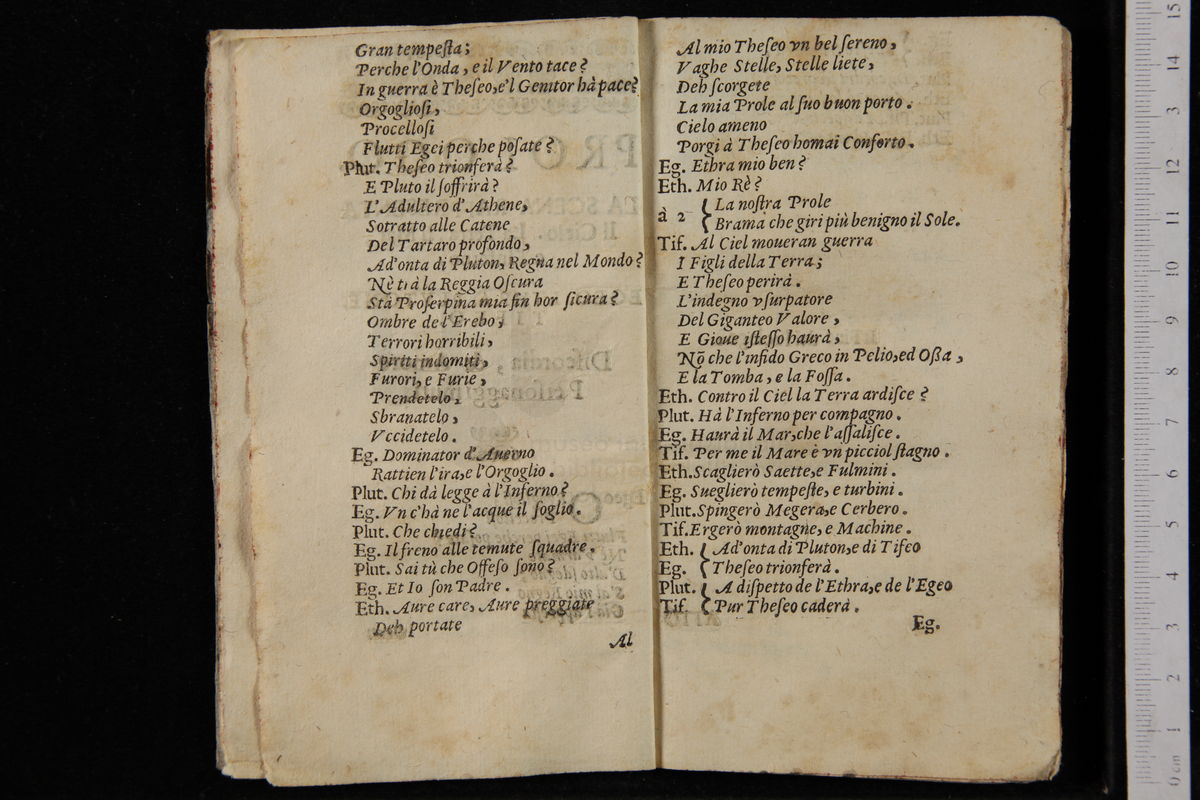 Gran tempeſta;
Perche l'Onda, e il Vento tace?
In guerra è Theſeo, e'l Genitor hà pace?
Orgoglioſi,
Procelloſi
Flutti Egei perche poſate?
Plut. Theſeo trionferà?
E Pluto il ſoffrirà?
L'Adultero d'Athene,
Sotratto alle Catene
Del Tartaro profondo,
Ad'onta di Pluton, Regna nel Mondo?
Nè tù à la Reggia Oſcura
Stà Proſerpina mia ſin hor ſicura?
Ombre de l'Erebo,
Terrori horribili,
Spiriti indomiti,
Furori, e Furie,
Prendetelo,
Sbranatelo,
Vccidetelo.
Eg. Dominator d'Auerno
Rattien l'ira, e l'Orgoglio.
Plut. Chi dà legge à l'Inferno?
Eg. Vn c'hà ne l'acque il ſoglio.
Plut. Che chiedi?
Eg. Il freno alle temute ſquadre.
Plut. Sai tù che Offeſo ſono?
Eg. Et Io ſon Padre.
Eth. Aure care, Aure preggiate
Deh portate
Al
Al mio Theſeo vn bel ſereno,
Vaghe Stelle, Stelle liete,
Deh ſcorgete
La mia Prole al ſuo buon porto.
Cielo ameno
Porgi à Theſeo homai Conforto.
Eg. Ethra mio ben?
Eth. Mio Rè?
à 2 { La noſtra Prole
Brama che giri più benigno il Sole.
Tif. Al Ciel moueran guerra
I Figli della Terra;
E Theſeo perirà.
L'indegno vſurpatore
Del Giganteo Valore,
E Gioue iſteſſo haurà,
Nõ che l'infido Greco in Pelio, ed Oßa,
E la Tomba, e la Foſſa.
Eth. Contro il Ciel la Terra ardiſce?
Plut. Hà l'Inferno per compagno.
Eg. Haurà il Mar, che l'aſſaliſce.
Tif. Per me il Mare è vn picciol ſtagno.
Eth. Scaglierò Saette, e Fulmini.
Eg. Sueglierò tempeſte, e turbini.
Plut. Spingerò Megera, e Cerbero.
Tif. Ergerò montagne, e Machine.
Eth. { Ad'onta di Pluton, e di Tifeo
Eg. { Theſeo trionferà.
Plut. { A diſpetto de l'Ethra, e de l'Egeo
Tif. { Pur Theſeo caderà.
Eg.